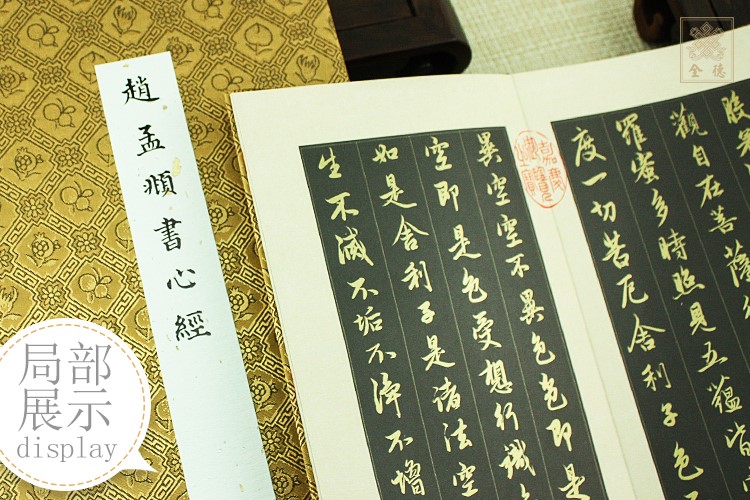 趙孟頫書心經
觀自在菩薩
羅蜜多時照見五蘊皆
度一切苦厄舍利子色
異空空不異色色即是
空即是色受想行識
如是舍利子是諸法空
生不滅不垢不淨不增
局部
展示
display
全德